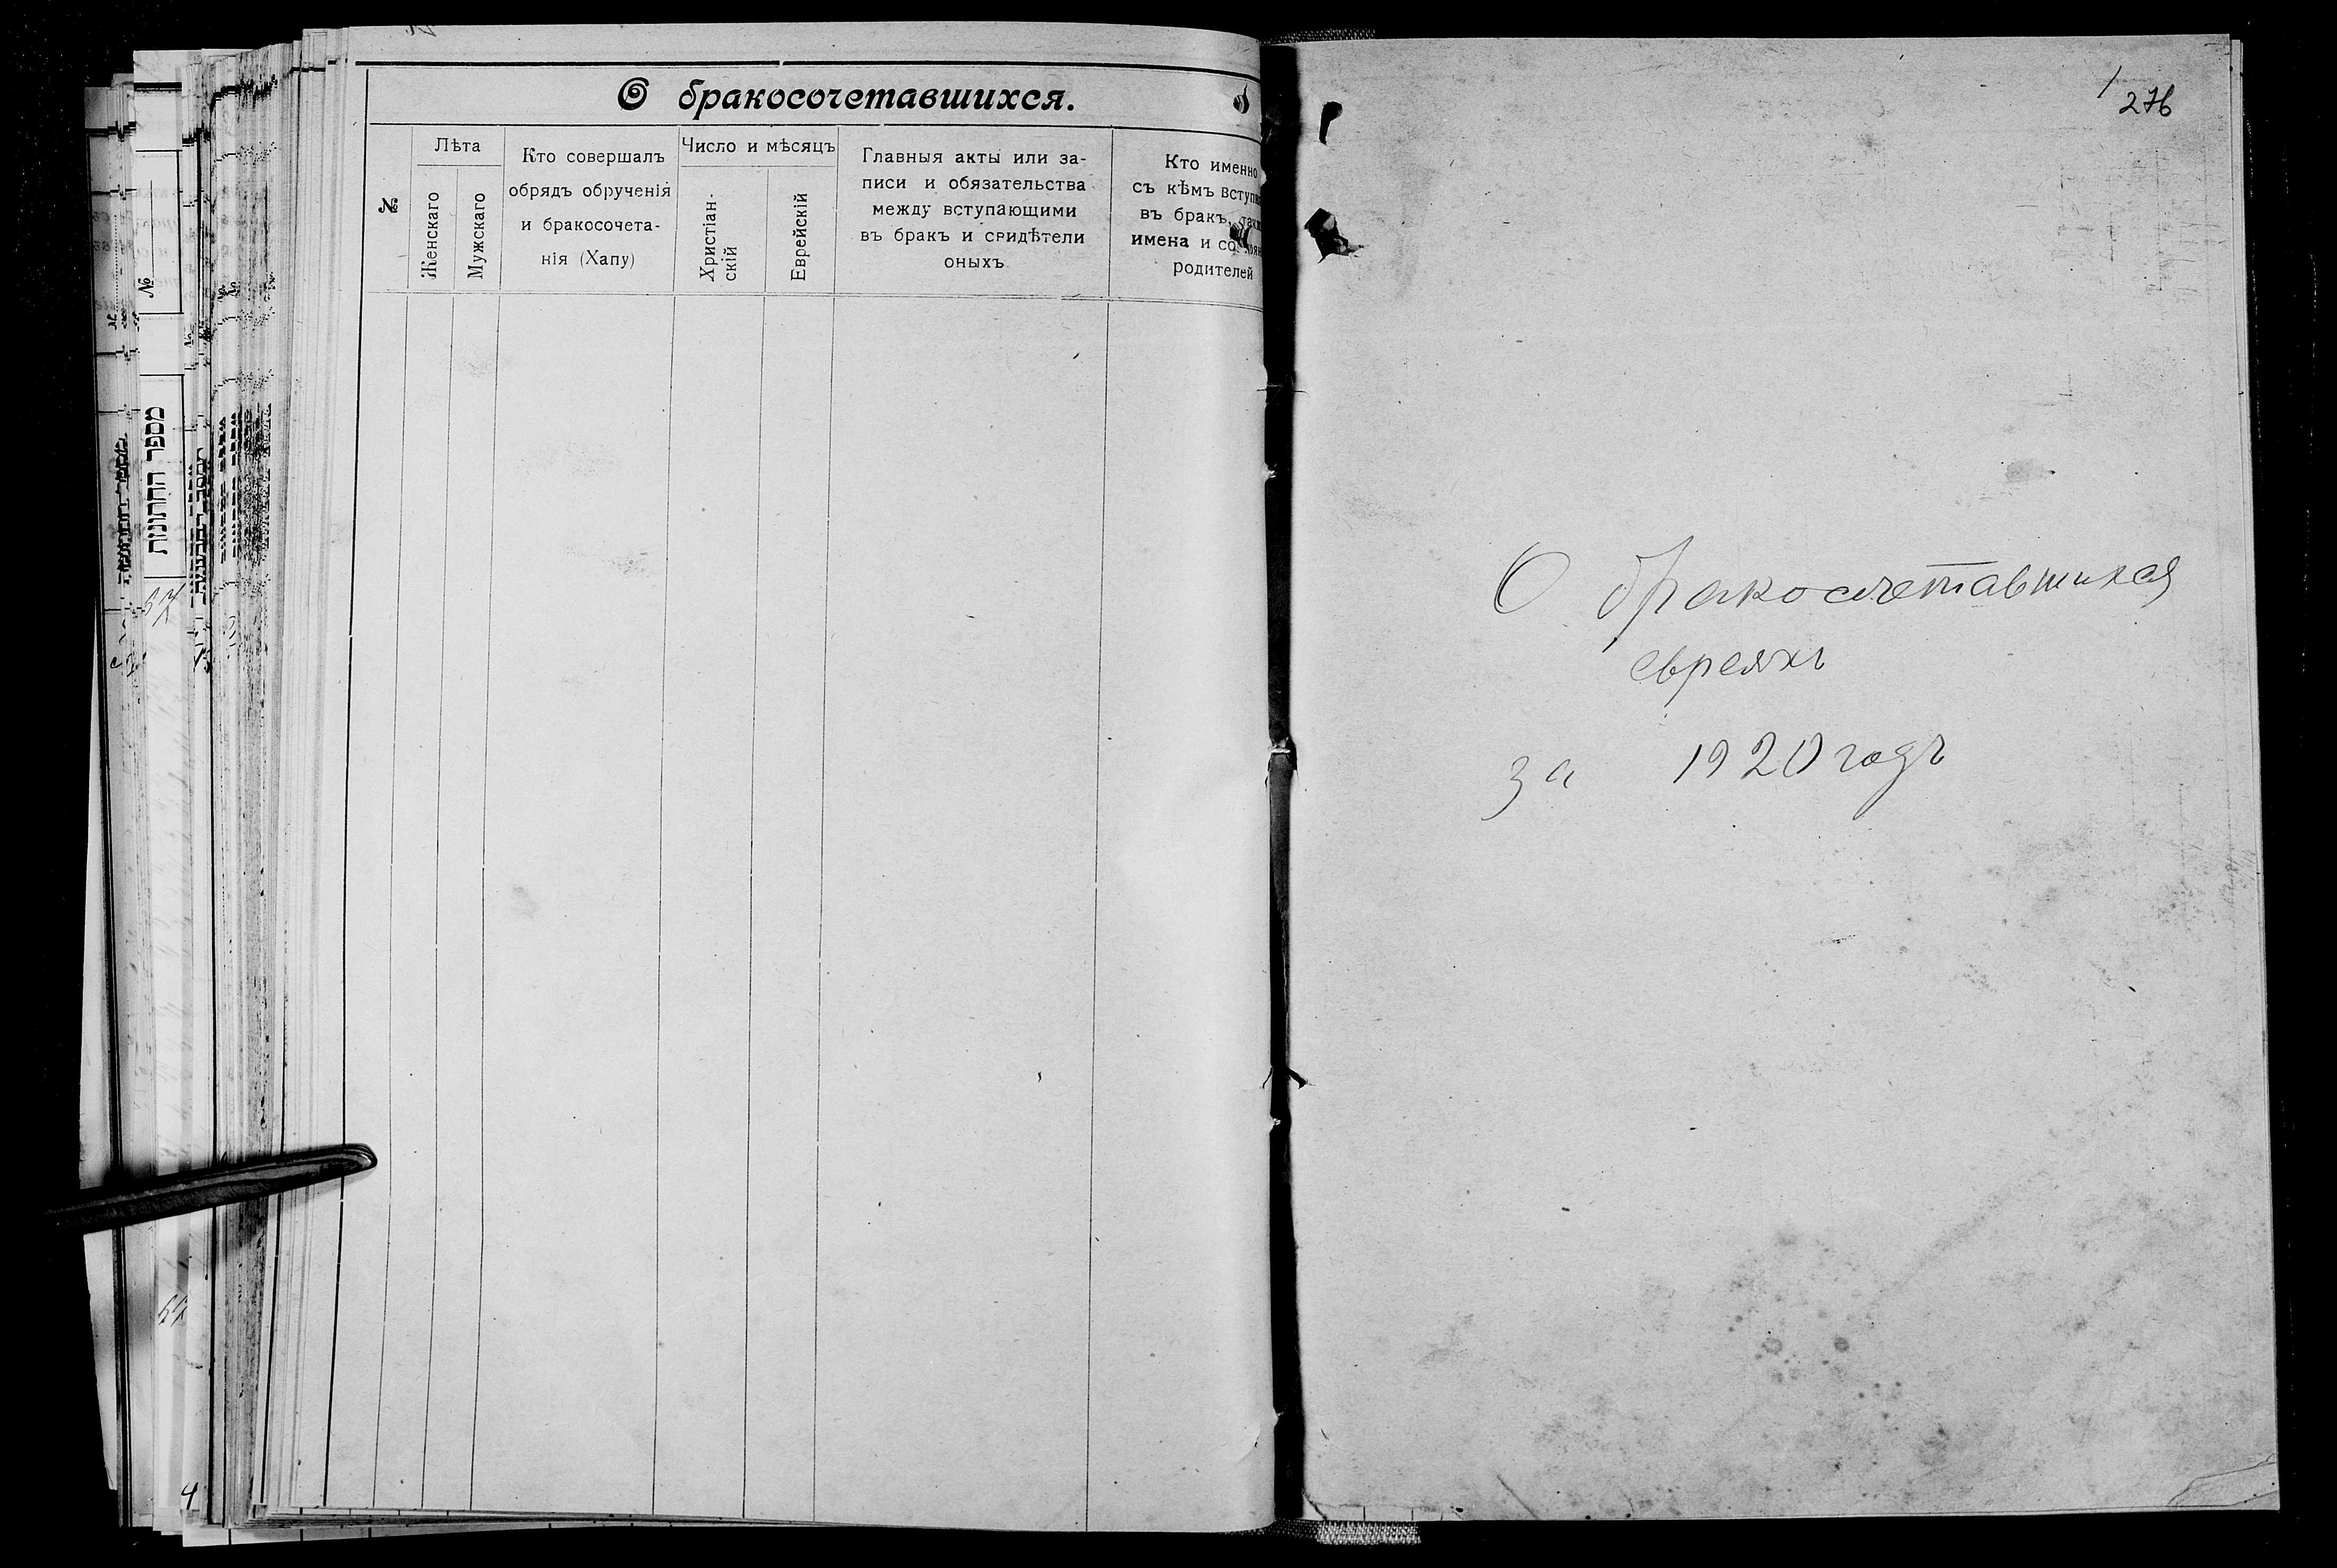 О бракосочетавшихся.
№
Лѣта
Женскаго
Мужскаго
Кто совершалъ
обрядъ обрученія
и бракосочета-
нія (Хапу)
Число и мѣсяцъ
Христіан-
скій
Еврейскій
Главныя акты или за-
писи и обязательства
между вступающими
въ бракъ и свидѣтели
оныхъ
Кто именно
съ кѣмъ
въ бракъ,
имена и
родителей
№
מספר החתונות
1
276
О бракосочетавшихся
евреяхъ
за 1920 годъ